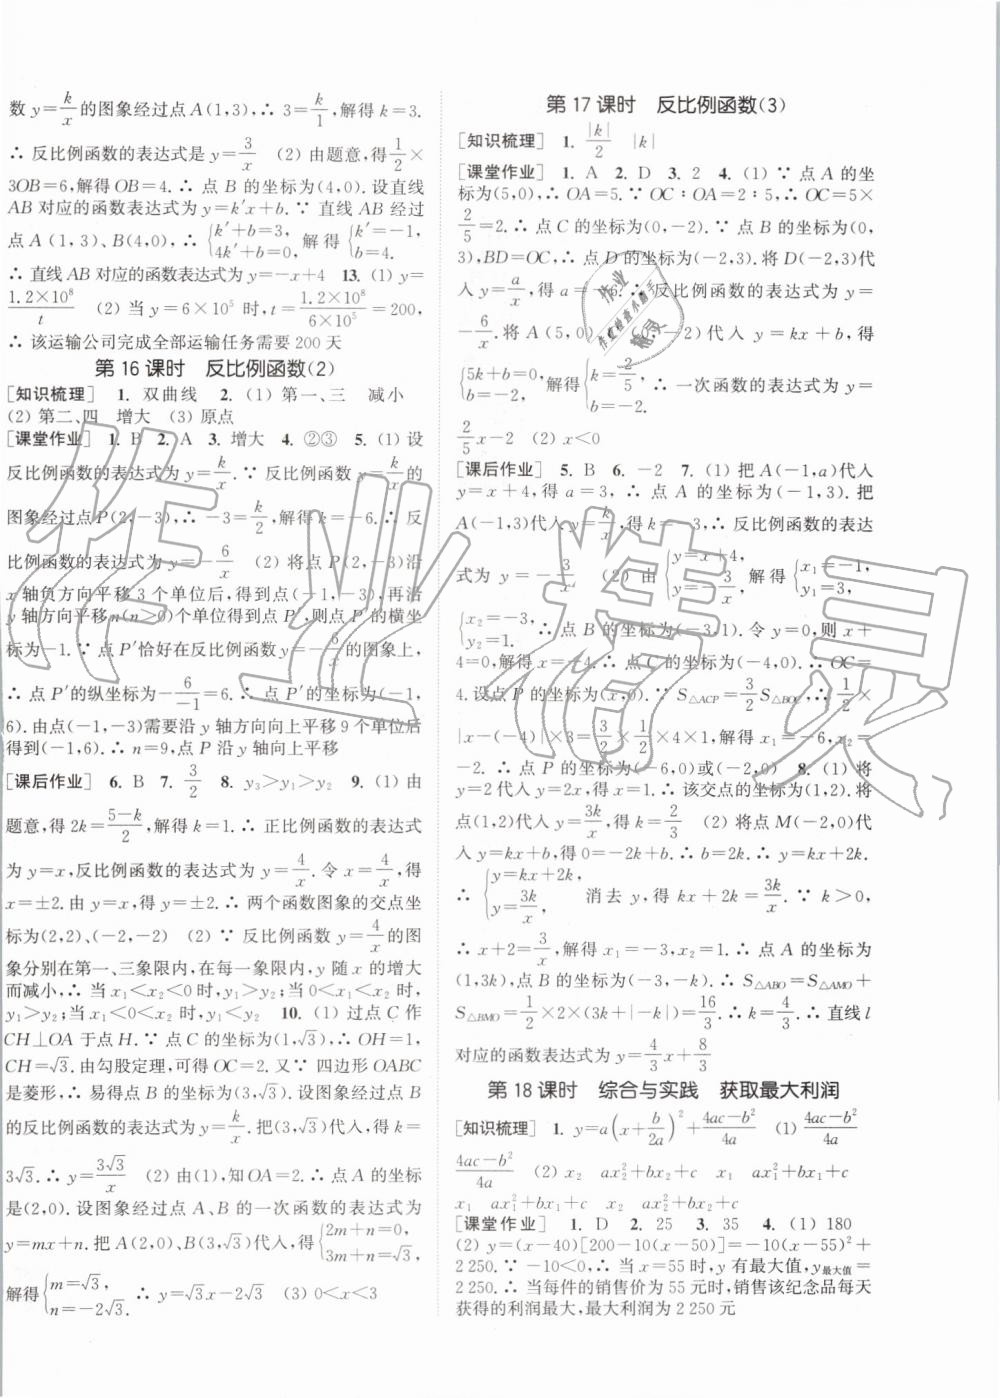 数 y=k/x 的图象经过点 A(1,3),∴ 3=k/1,解得 k=3.
∴ 反比例函数的表达式是 y=3/x (2) 由题意,得 1/2×
3OB=6,解得OB=4.∴ 点 B 的坐标为(4,0).设直线
AB 对应的函数表达式为 y=k′x+b.∵ 直线 AB 经过
点 A(1,3)、B(4,0),∴ {k′+b=3, 4k′+b=0, 解得 {k′=-1, b=4.
∴ 直线 AB 对应的函数表达式为 y=-x+4 13. (1) y=
1.2×10⁸/t (2) 当 v=6×10⁵ 时,t=1.2×10⁸/6×10⁵=200,
∴ 该运输公司完成全部运输任务需要 200 天
第 16 课时 反比例函数(2)
[知识梳理] 1. 双曲线 2. (1) 第一、三 减小
(2) 第二、四 增大 (3) 原点
[课堂作业] 1. B 2. A 3. 增大 4. ②③ 5. (1) 设
反比例函数的表达式为 y=k/x.∵ 反比例函数 y=k/x 的
图象经过点P(2,-3),∴ -3=k/2,解得 k=-6.∴ 反
比例函数的表达式为 y=-6/x (2) 将点 P(2,-3)沿
x 轴负方向平移 3 个单位后,得到点(-1,-3),再沿
y 轴方向平移n(n>0)个单位得到点 P′,则点 P′的横坐
标为-1.∵ 点 P′恰好在反比例函数 y=-6/x 的图象上,
∴ 点 P′的纵坐标为-6/-1=6.∴ 点 P′的坐标为(-1,
6).由点(-1,-3)需要沿 y 轴方向向上平移 9 个单位后
得到(-1,6).∴ n=9,点 P 沿 y 轴向上平移
[课后作业] 6. B 7. 3/2 8. y₃>y₁>y₂ 9. (1) 由
题意,得 2k=5-k/2,解得 k=1.∴ 正比例函数的表达式
为 y=x,反比例函数的表达式为 y=4/x.令 x=4/x,得
x=±2.由 y=x,得 y=±2.∴ 两个函数图象的交点坐
标为(2,2)、(-2,-2) (2) ∵ 反比例函数 y=4/x 的图
象分别在第一、三象限内,在每一象限内,y 随 x 的增大
而减小,∴ 当 x₁<x₂<0 时,y₁>y₂;当 0<x₁<x₂ 时,
y₁>y₂;当 x₁<0<x₂ 时,y₁<y₂ 10. (1) 过点 C 作
CH⊥OA 于点 H.∵ 点 C 的坐标为(1,√3),∴ OH=1,
CH=√3.由勾股定理,可得 OC=2.又∵ 四边形 OABC
是菱形,∴ 易得点 B 的坐标为(3,√3).设图象经过点 B
的反比例函数的表达式为 y=k/x.把(3,√3)代入,得 k=
3√3.∴ y=3√3/x (2) 由(1),知OA=2.∴ 点 A 的坐标
是(2,0).设图象经过点 A、B 的一次函数的表达式为
y=mx+n.把 A(2,0)、B(3,√3)代入,得 {2m+n=0, 3m+n=√3,
解得 {m=√3, n=-2√3. ∴ y=√3x-2√3 (3) 0<x<3
第 17 课时 反比例函数(3)
[知识梳理] 1. |k|/2 |k|
[课堂作业] 1. A 2. D 3. 2 4. (1) ∵ 点 A 的坐
标为(5,0),∴ OA=5.∵ OC∶OA=2∶5,∴ OC=5×
2/5=2.∴ 点 C 的坐标为(0,-2).∵ 点 B 的坐标为(0,
3),BD=OC,∴ 点 D 的坐标为(-2,3).将 D(-2,3)代
入 y=a/x,得 a=-6.∴ 反比例函数的表达式为 y=
-6/x.将 A(5,0)、 -2)代入 y=kx+b,得
{5k+b=0, b=-2, 解得 {k=2/5, b=-2. ∴ 一次函数的表达式为 y=
2/5x-2 (2) x<0
[课后作业] 5. B 6. -2 7. (1) 把 A(-1,a)代入
y=x+4,得 a=3,∴ 点 A 的坐标为(-1,3).把
A(-1,3)代入 y=k/x,得 k=-3,∴ 反比例函数的表达
式为 y=-3/x (2) 由 {y=x+4, y=-3/x, 解得 {x₁=-1, y₁=3,
{x₂=-3, y₂=1. ∴ 点 B 的坐标为(-3,1).令 y=0,则 x+
4=0,解得 x=-4.∴ 点 C 的坐标为(-4,0).∴ OC=
4.设点 P 的坐标为(x,0).∵ S△ACP=3/2S△BOC,∴ 1/2×
|x-(-4)|×3=3/2×1/2×4×1,解得 x₁=-6,x₂=
-2.∴ 点 P 的坐标为(-6,0)或(-2,0) 8. (1) 将
y=2代入 y=2x,得 x=1.∴ 该交点的坐标为(1,2).将
点(1,2)代入 y=3k/x,得 k=2/3 (2) 将点 M(-2,0)代
入 y=kx+b,得 0=-2k+b.∴ b=2k.∴ y=kx+2k.
∴ {y=kx+2k, y=3k/x, 消去 y,得 kx+2k=3k/x.∵ k>0,
∴ x+2=3/x,解得 x₁=-3,x₂=1.∴ 点 A 的坐标为
(1,3k),点 B 的坐标为(-3,-k).∴ S△ABO=S△AMO+
S△BMO=1/2×2×(3k+|-k|)=16/3.∴ k=4/3.∴ 直线 l
对应的函数表达式为 y=4/3x+8/3
第 18 课时 综合与实践 获取最大利润
[知识梳理] 1. y=a(x+b/2a)²+4ac-b²/4a (1) 4ac-b²/4a
4ac-b²/4a (2) x₂ ax₂²+bx₂+c x₁ ax₁²+bx₁+c
x₁ ax₁²+bx₁+c x₂ ax₂²+bx₂+c
[课堂作业] 1. D 2. 25 3. 35 4. (1) 180
(2) y=(x-40)[200-10(x-50)]=-10(x-55)²+
2 250.∵ -10<0,∴ 当 x=55 时,y 有最大值,y最大值=
2 250.∴ 当每件的销售价为 55 元时,销售该纪念品每天
获得的利润最大,最大利润为 2 250 元
作业精灵